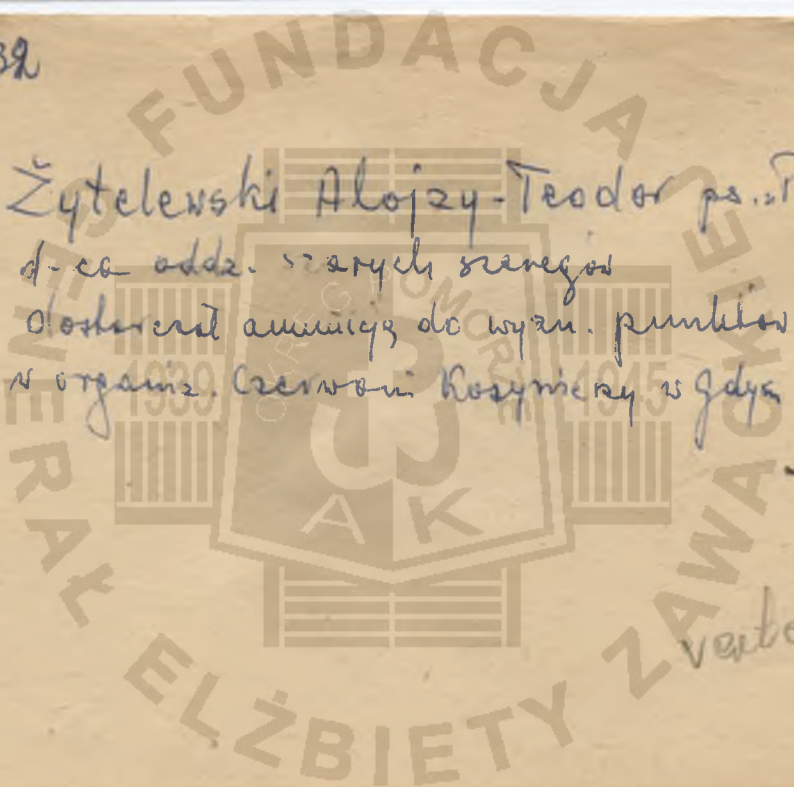 32
Żytelewski Alojzy-Teodor ps. „P
d-ca oddz. szarych szeregów
dostarczał amunicję do wyzn. punktów
w organiz. Czerwoni Kosynierzy w Gdyn
verte
FUNDACJA
GENERAŁ ELŻBIETY ZAWACKIEJ
OKRĘG POMORZE
1939 1945
AK